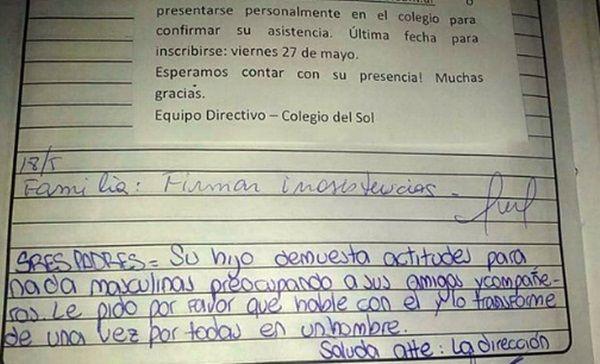 presentarse personalmente en el colegio para
confirmar su asistencia. Última fecha para
inscribirse: viernes 27 de mayo.
Esperamos contar con su presencia! Muchas
gracias.
Equipo Directivo – Colegio del Sol
18/5
Familia: Firmar inasistencias -
SRES PADRES = Su hijo demuesta actitudes para
nada masculinas preocupando a sus amigos y compañe-
ras. Le pido por favor que hable con el y lo transforme
de una vez por todas en un hombre.
Saluda atte: La dirección